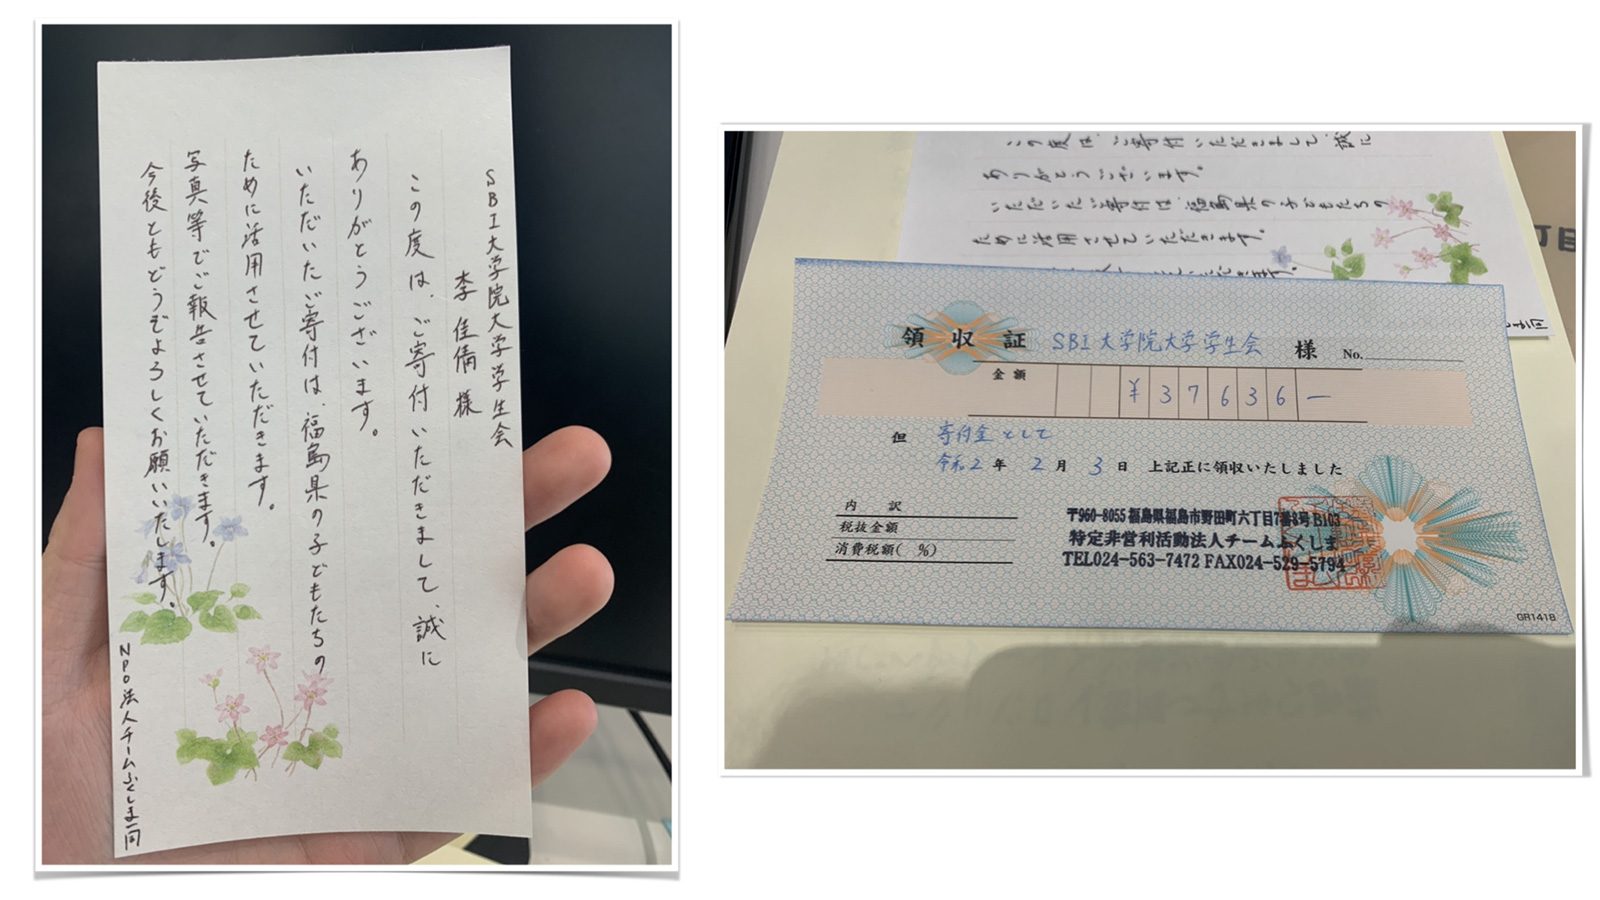 SBI大学院大学学生会
李佳倩様
この度は、ご寄付いただきまして、誠に
ありがとうございます。
いただいたご寄付は、福島県の子どもたちの
ために活用させていただきます。
写真等でご報告させていただきます。
今後ともどうぞよろしくお願いいたします。
NPO法人チームふくしま一同
この度は、ご寄付いただきまして、誠に
ありがとうございます。
いただいたご寄付は、福島県の子どもたちの
ために活用させていただきます。
領収証 SBI大学院大学学生会 様 No.
金額 ¥37636-
但 寄付金として
令和2年2月3日 上記正に領収いたしました
内訳
税抜金額
消費税額( %)
〒960-8055福島県福島市野田町六丁目7番8号 B103
特定非営利活動法人チームふくしま
TEL024-563-7472 FAX024-529-5794
GR1418